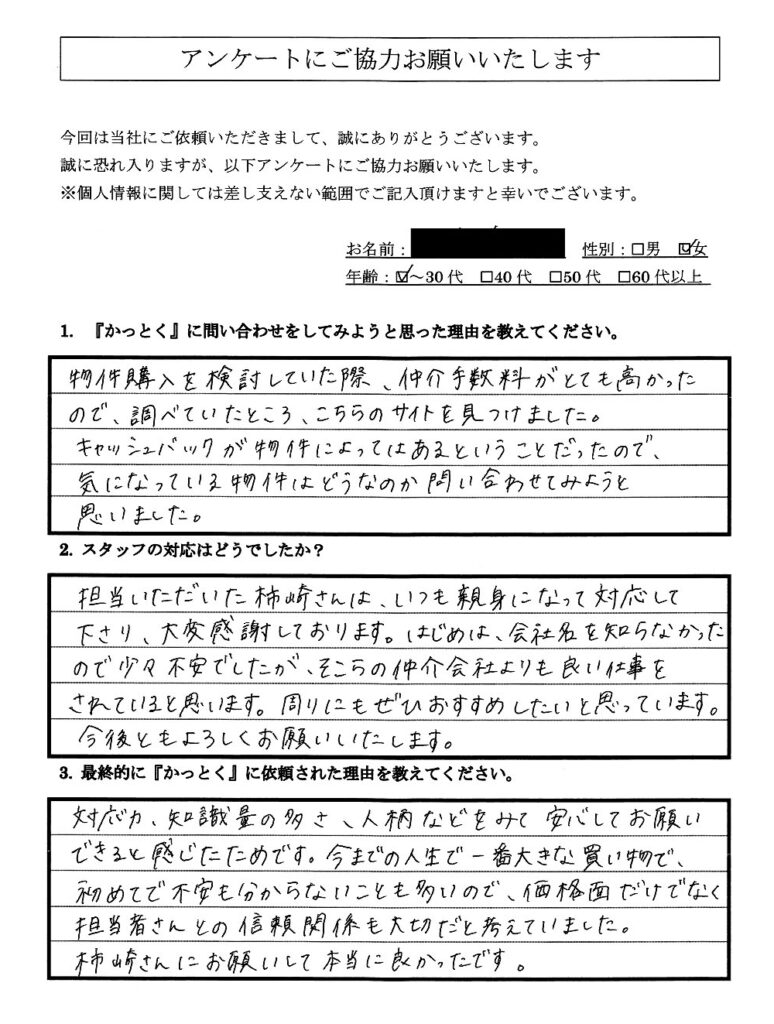 アンケートにご協力お願いいたします
今回は当社にご依頼いただきまして、誠にありがとうございます。
誠に恐れ入りますが、以下アンケートにご協力お願いいたします。
※個人情報に関しては差し支えない範囲でご記入頂けますと幸いでございます。
お名前： 性別：□男 ☑女
年齢：☑～30代 □40代 □50代 □60代以上
1. 『かっとく』に問い合わせをしてみようと思った理由を教えてください。
物件購入を検討していた際、仲介手数料がとても高かった
ので、調べていたところ、こちらのサイトを見つけました。
キャッシュバックが物件によってはあるということだったので、
気になっている物件はどうなのか問い合わせてみようと
思いました。
2. スタッフの対応はどうでしたか？
担当いただいた柿崎さんは、いつも親身になって対応して
下さり、大変感謝しております。はじめは、会社名を知らなかった
ので少々不安でしたが、そこらの仲介会社よりも良い仕事を
されていると思います。周りにもぜひおすすめしたいと思っています。
今後ともよろしくお願いいたします。
3. 最終的に『かっとく』に依頼された理由を教えてください。
対応力、知識量の多さ、人柄などをみて安心してお願い
できると感じたためです。今までの人生で一番大きな買い物で、
初めてで不安も分からないことも多いので、価格面だけでなく
担当者さんとの信頼関係も大切だと考えていました。
柿崎さんにお願いして本当に良かったです。